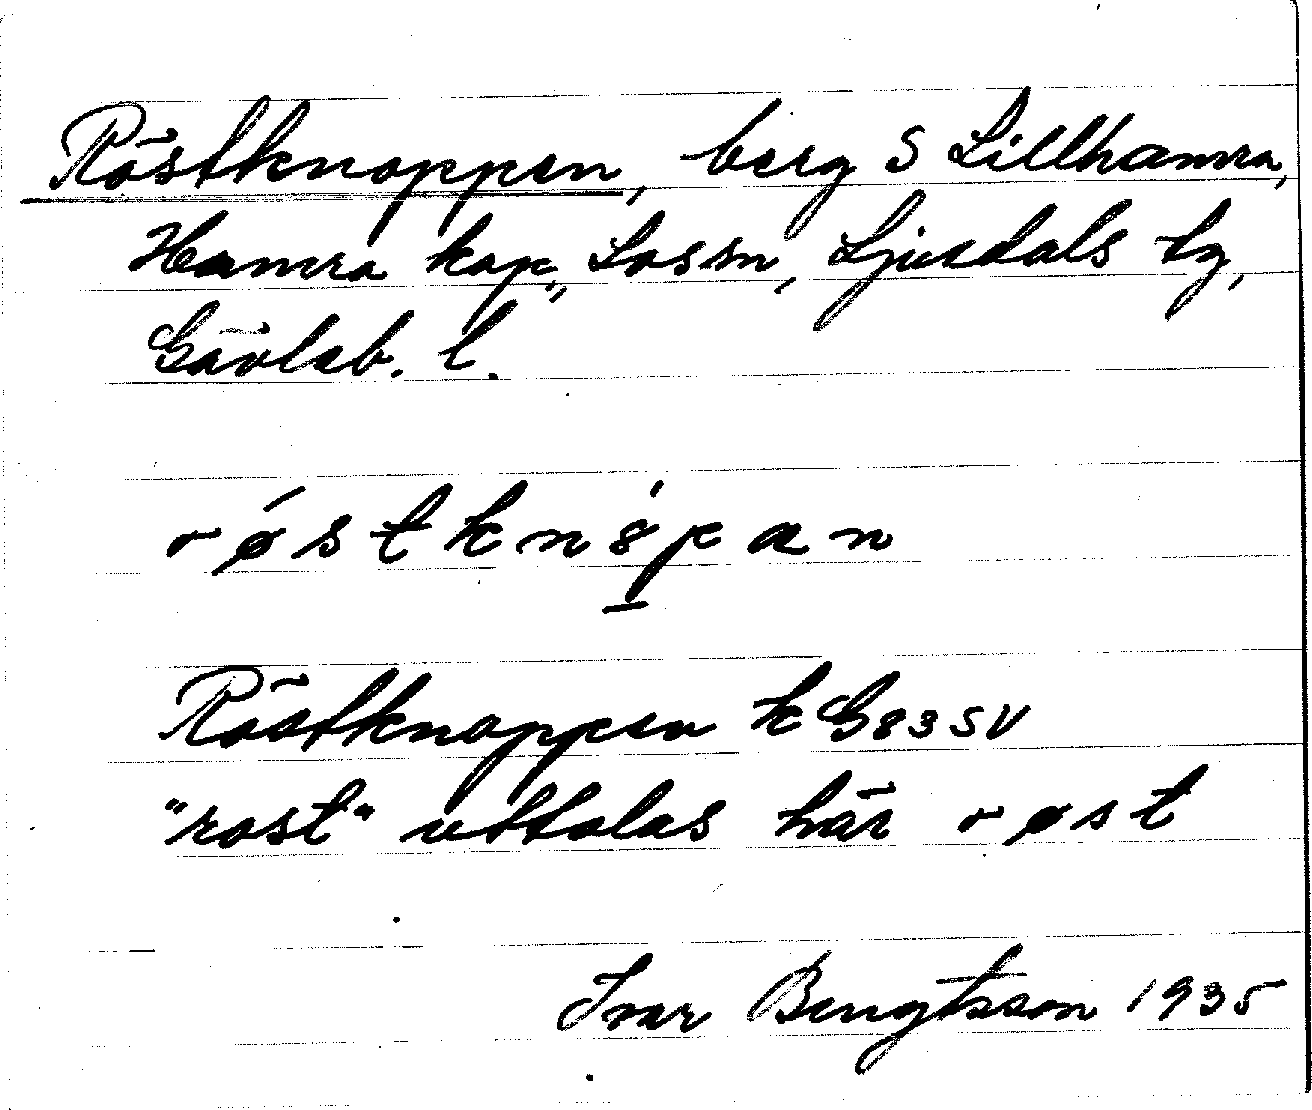 Röstknoppen, berg S Lillhamra,
Hamra kap., Los sn, Ljusdals tg,
Gävleb. l.
røstkn8pan
Röstknoppen k G83SV
"rost" uttalas här røst
Ivar Bengtsson 1935